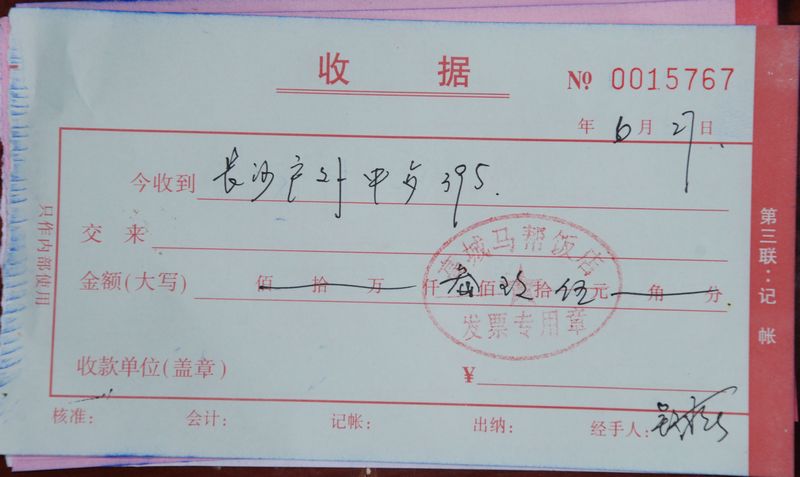 收 据
№ 0015767
年 6 月 27 日
今收到 长沙户外中餐 395.
交 来
金额(大写) 佰 拾 万 仟 叁 佰 玖 拾 伍 元 角 分
城马帮饭店
发票专用章
收款单位(盖章) ¥
核准: 会计: 记帐: 出纳: 经手人:
只作内部使用
第三联:记 帐